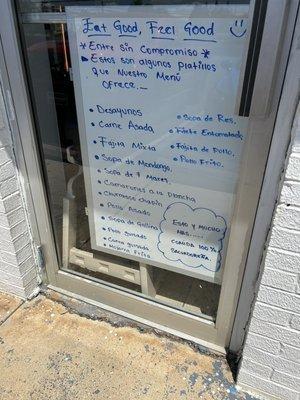 Eat Good, Feel Good
*Entre Sin Compromiso*
Estos son algunos platillos
Que Nuestro Menú
Ofrece...
• Desayunos
• Carne Asada
• Fajita Mixta
• Sopa de Mondongo
• Sopa de 7 Mares
• Camarones a la Plancha
• Churrasco Chapin
• Pollo Asado
• Sopa de Gallina
• Pollo guisado
• Carne guisada
• Mojarra Frita
• Sopa de Res
• Encurtido
• Fajita de Pollo
• Pollo Frito
Esto y Mucho
Mas.....
Comida 100%
Salvadoreña